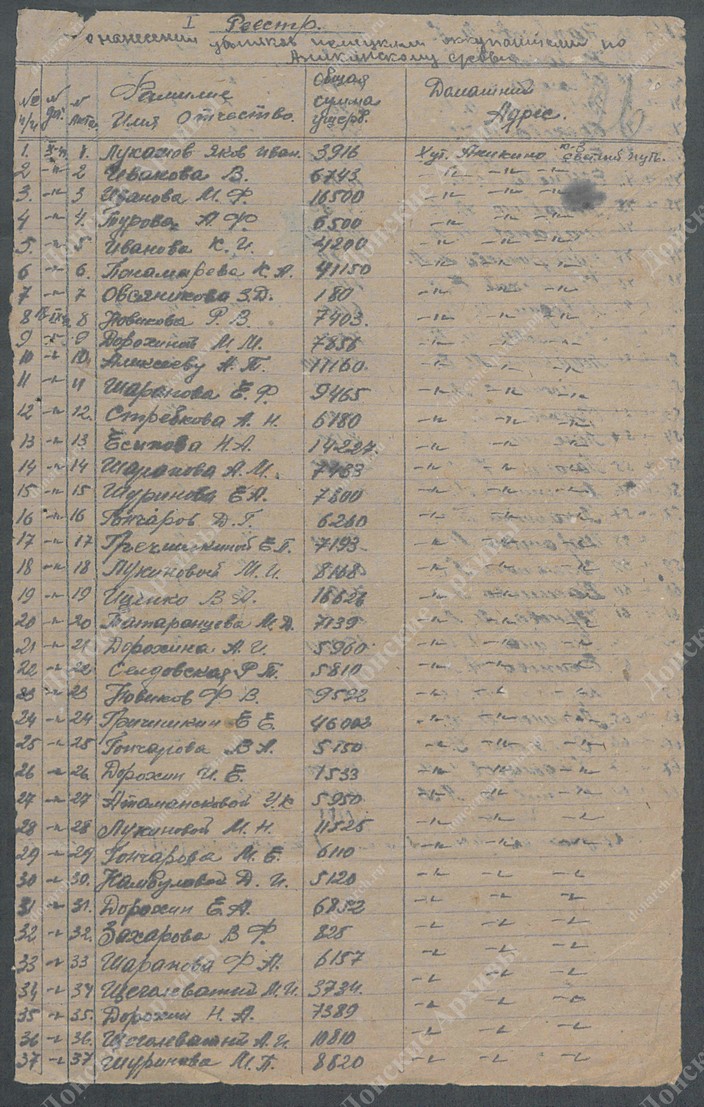 I Реестр.
о нанесении убытков немецкими оккупантами по
Аникинскому
№ п/п № № Фамилие Имя Отчество. Общая сумма ущерб. Домашний Адрес.
1. 1. Лукашов Яков Иван. 3916 Хут. Аникино
2 -"- 2 Ивакова В. 6743 -"- -"- -"-
3. -"- 3 Иванова М. Ф. 16500 -"- -"- -"-
4 -"- 4. Турова А. Ф. 6500 -"- -"- -"-
5. -"- 5 Иванова К. И. 4200 -"- -"- -"-
6 -"- 6. Понамарева К. А. 41150 -"- -"- -"-
7 -"- 7 Овсяникова З. Д. 180 -"- -"- -"-
8 8 Новикова Р. В. 7403. -"- -"- -"-
9 9 Дорохиной М. М. 7856 -"- -"- -"-
10 -"- 10, Алексееву А. Т. 11160. -"- -"- -"-
11 -"- 11 Шарапова Е. Ф. 9465 -"- -"- -"-
12 -"- 12. Стребкова А. Н. 6180 -"- -"- -"-
13 -"- 13 Есипова Н. А. 14227. -"- -"- -"-
14 -"- 14 Шарапова А. М. 7433 -"- -"- -"-
15 -"- 15 Шуринова Е. А. 7800 -"- -"- -"-
16 -"- 16 Гончаров Д. Г. 6260 -"- -"- -"-
17 -"- 17 Гречишкиной Е. П. 7193 -"- -"- -"-
18 -"- 18 Лукиновой М. И. 8168 -"- -"- -"-
19 -"- 19 Ищенко В. Д. 16626 -"- -"- -"-
20 -"- 20 Татаранцева М. Д. 7139 -"- -"- -"-
21 -"- 21 Дорохина А. И. 5960 -"- -"- -"-
22 -"- 22 Селдовская Р. Т. 5810 -"- -"- -"-
23 -"- 23 Новиков Ф. В. 9592 -"- -"- -"-
24 -"- 24 Гричишкин Е. Е. 46002 -"- -"- -"-
25 -"- 25 Гончарова В. А. 5150 -"- -"- -"-
26 -"- 26. Дорохин И. Е. 1533 -"- -"- -"-
27 -"- 27 Атамансковой У. К 5950 -"- -"- -"-
28 -"- 28 Лукиновой М. Н. 11525 -"- -"- -"-
29 -"- 29 Гончарова М. Е. 6110 -"- -"- -"-
30 -"- 30. Камбуловой Д. И. 5120 -"- -"- -"-
31 -"- 31. Дорохин Е. А. 6852 -"- -"- -"-
32 -"- 32. Захарова В. Ф. 825 -"- -"- -"-
33 -"- 33 Шарапова Ф. А. 6157 -"- -"- -"-
34 -"- 34 Щеголеватий М. И. 3734. -"- -"- -"-
35 -"- 35. Дорохин Н. А. 7389 -"- -"- -"-
36 -"- 36. Щеголеватий А. И. 10810 -"- -"- -"-
37 -"- 37 Шуринова М. П. 8820 -"- -"- -"-
Донские Архивы
donarch.ru